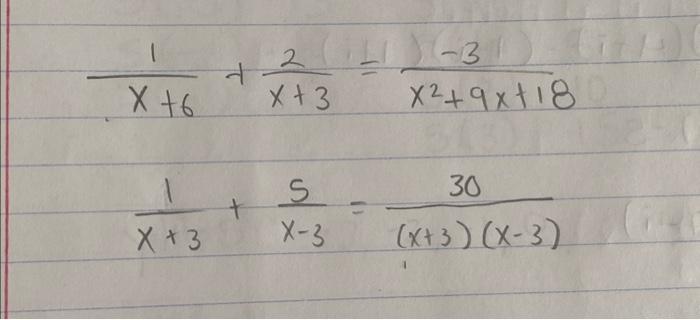 1/(x+6) + 2/(x+3) = -3/(x²+9x+18)
1/(x+3) + 5/(x-3) = 30/((x+3)(x-3))